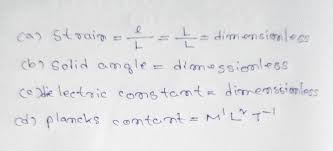 (a) Strain = l/L = L/L = dimensionless
(b) Solid angle = dimessionless
(c) Die lectric constant = dimenssionless
(d) plancks contant = M¹ L² T⁻¹